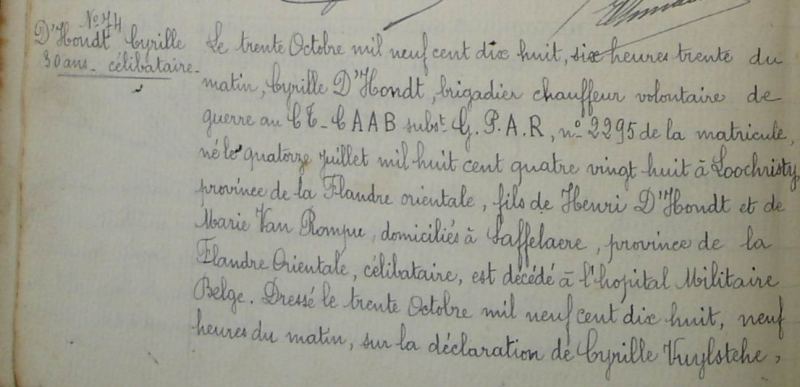 N° 74
D'Hondt Cyrille
30 ans_ célibataire_
Le trente Octobre mil neuf cent dix huit, six heures trente du
matin, Cyrille D'Hondt, brigadier chauffeur volontaire de
guerre au CT_CAAB subst. G.P.A.R, n° 2295 de la matricule,
né le quatorze Juillet mil huit cent quatre vingt huit à Loochristy
province de la Flandre orientale, fils de Henri D'Hondt et de
Marie Van Rompu, domiciliés à Saffelaere, province de la
Flandre Orientale, célibataire, est décédé à l'hopital Militaire
Belge. Dressé le trente Octobre mil neuf cent dix huit, neuf
heures du matin, sur la déclaration de Cyrille Vuylsteke,